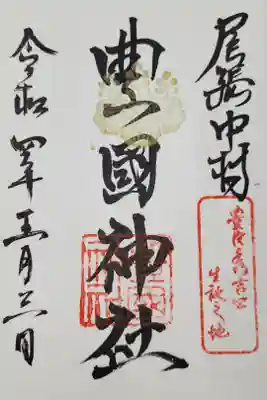 尾張中村
豊臣秀吉公
生誕之地
豊國神社
令和四年五月六日